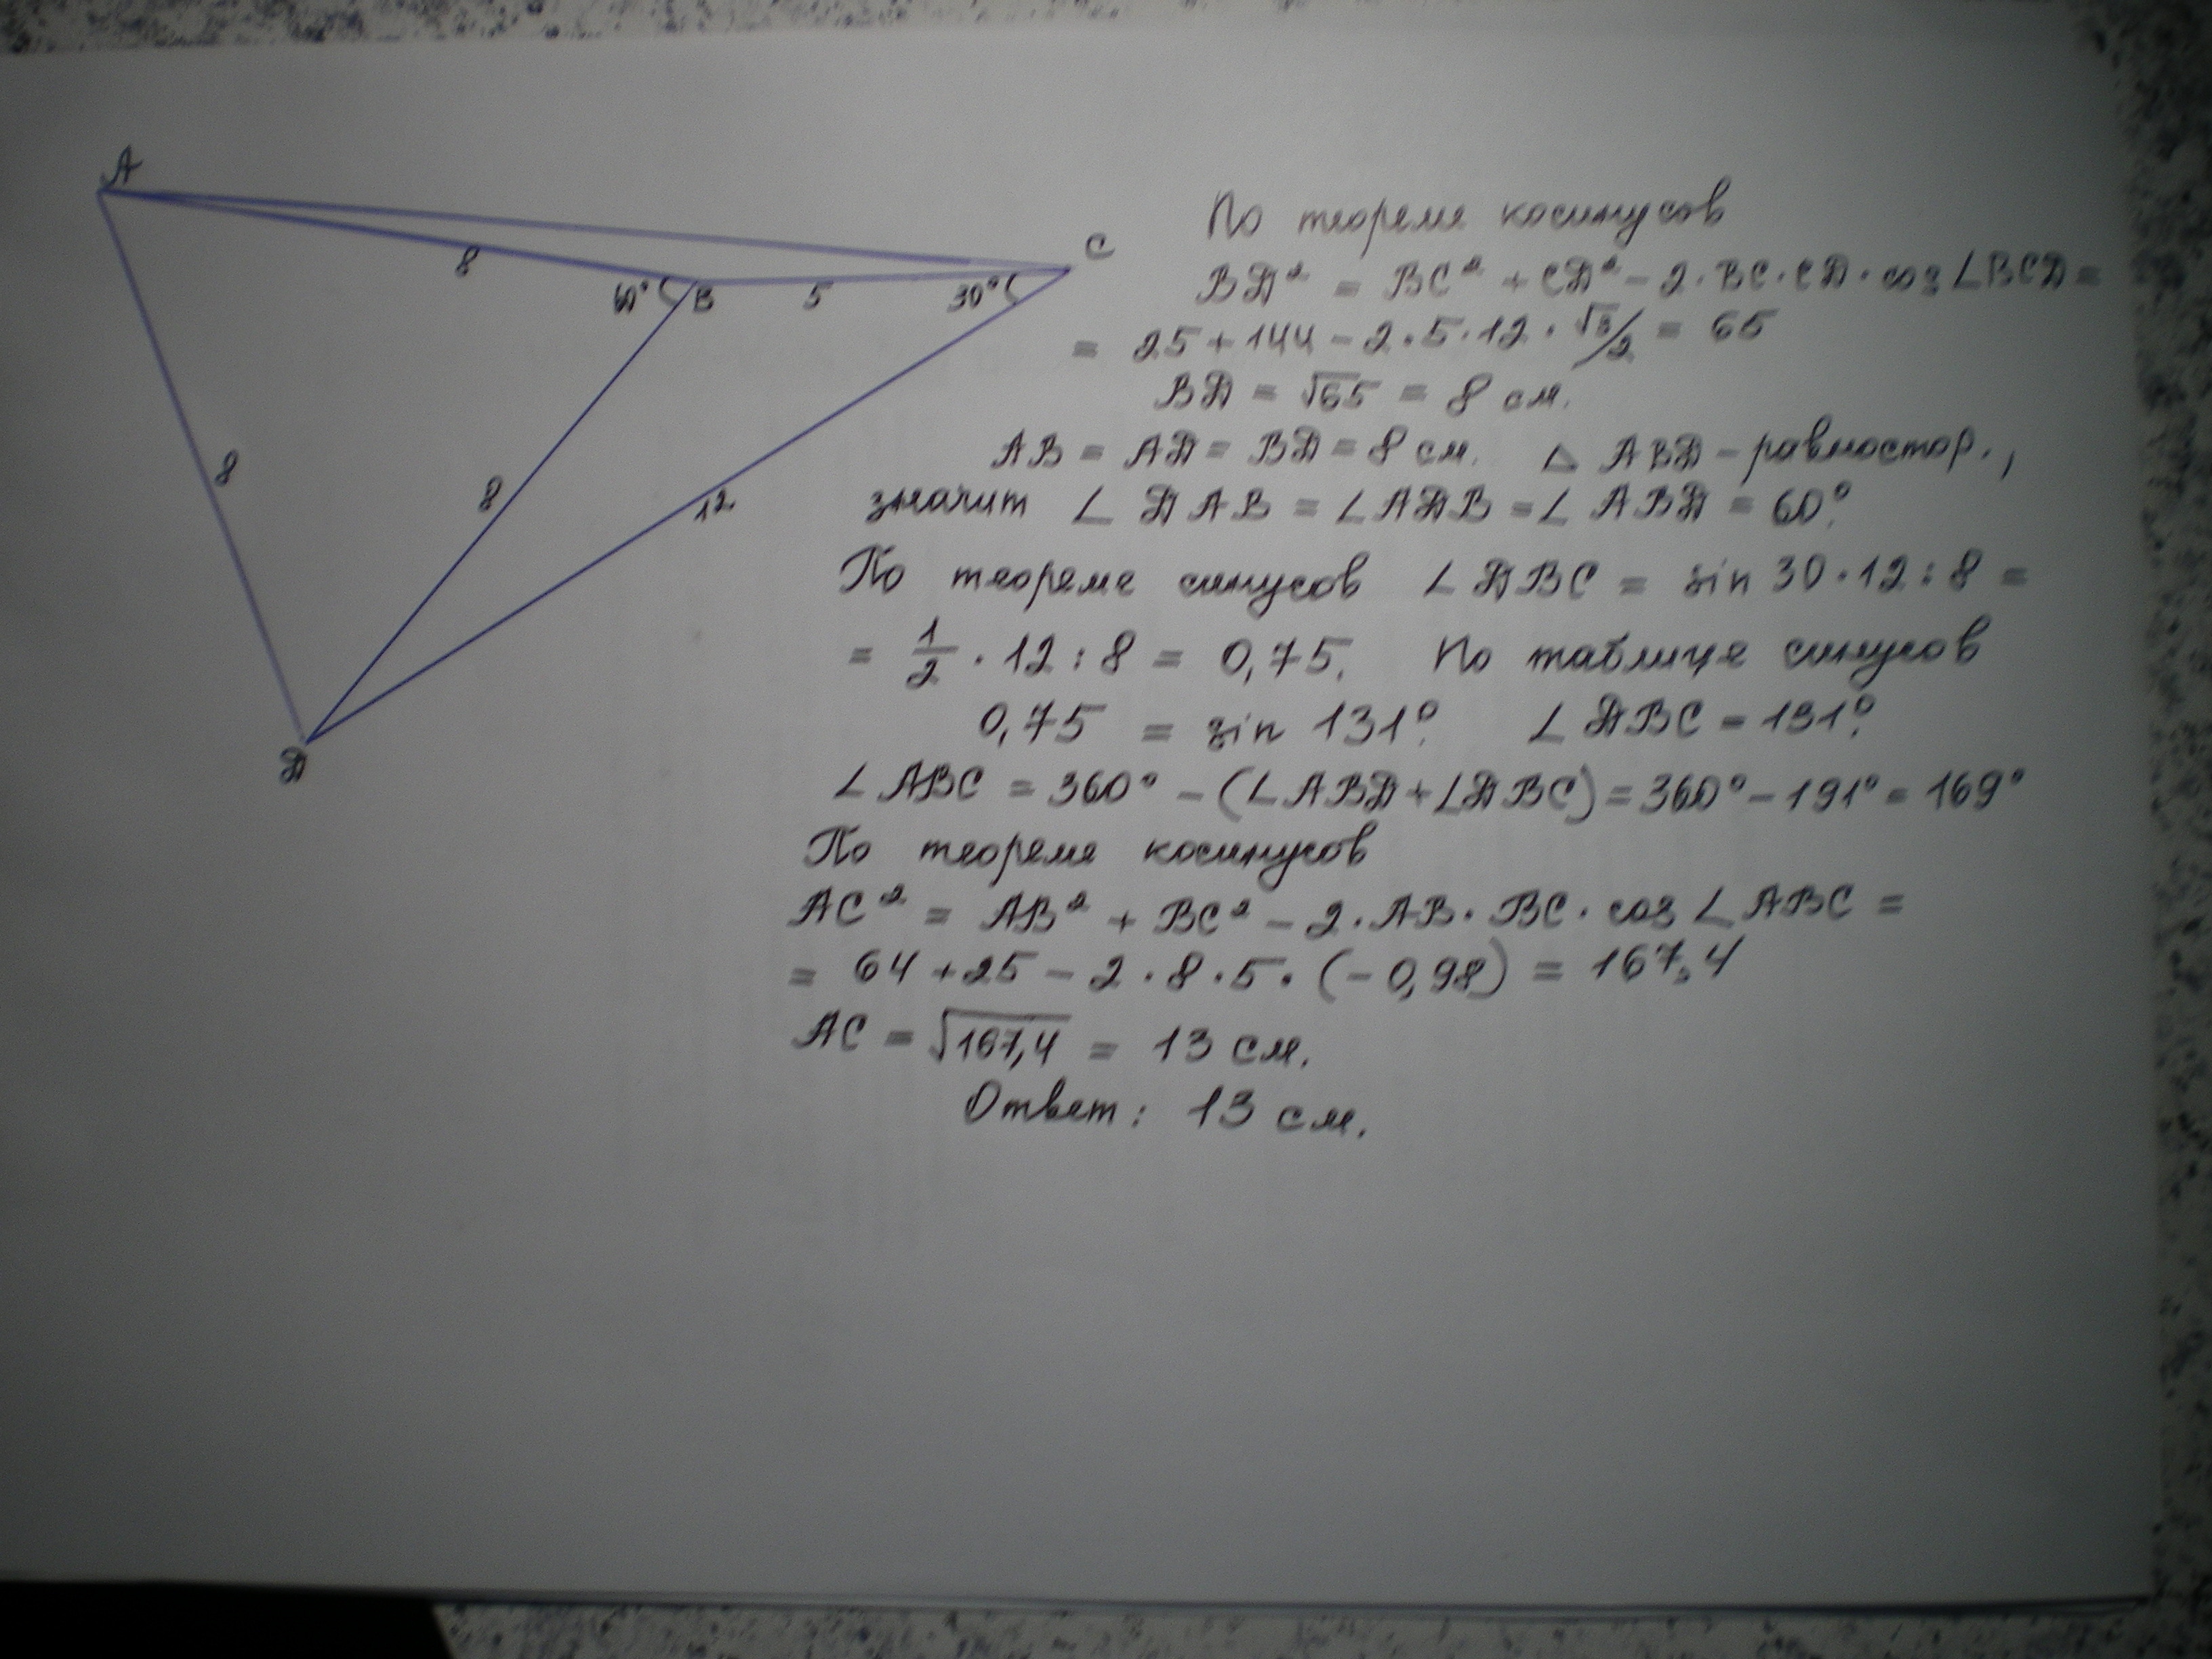 A
C
8
60°
B
5
30°
8
8
12
Д
По теореме косинусов
BД² = BC² + CД² - 2·BC·CД·cos∠BCД =
= 25 + 144 - 2·5·12·√3/2 = 65
BД = √65 = 8 см.
AB = AД = BД = 8 см. △ ABД - равностор.,
значит ∠ ДAB = ∠AДB = ∠ ABД = 60°.
По теореме синусов ∠ ДBC = sin 30·12:8 =
= 1/2 · 12:8 = 0,75. По таблице синусов
0,75 = sin 131°. ∠ ДBC = 131°.
∠ ABC = 360° - (∠ABД+∠ДBC) = 360° - 191° = 169°
По теореме косинусов
AC² = AB² + BC² - 2·AB·BC·cos∠ABC =
= 64 + 25 - 2·8·5·(-0,98) = 167,4
AC = √167,4 = 13 см.
Ответ: 13 см.